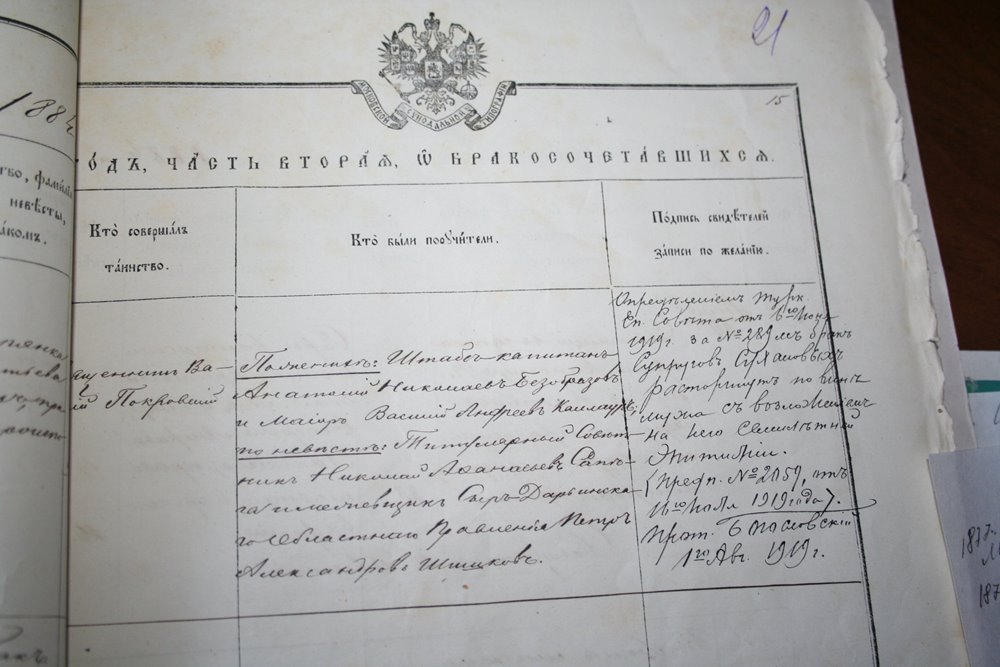 21
15
1884
МОСКОВСКОЙ СѴНОДАЛЬНОЙ ТИПОГРАФІИ
ОДЪ, ЧАСТЬ ВТОРАЯ, Ѿ БРАКОСОЧЕТАВШИХСЯ.
тво, фамилія
невѣсты,
акомъ.
Кто совершалъ
таинство.
Кто были поручители.
Подпись свидѣтелей
записи по желанію.
ященникъ Ва-
ій Покровскій
По женихѣ: Штабсъ-капитанъ
Анатолій Николаевъ Безобразовъ
и Маіоръ Василій Андреевъ Каллауръ,
по невѣстѣ: Титулярный Совѣт-
никъ Николай Аѳанасьевъ
Сыръ-Дарьинска-
го Областнаго Правленія Петръ
Александровъ
Опредѣленіемъ Турк.
Еп. Совѣта отъ 6го Іюня
1919г. за № 289мъ бракъ
Супруговъ Сухановыхъ
расторгнутъ по винѣ
мужа съ возложеніемъ
на него семилѣтней
Эпитиміи.
(Предп. № 2059, отъ
16 Іюля 1919 года).
Прот. Богословскій
1го Авг. 1919 г.